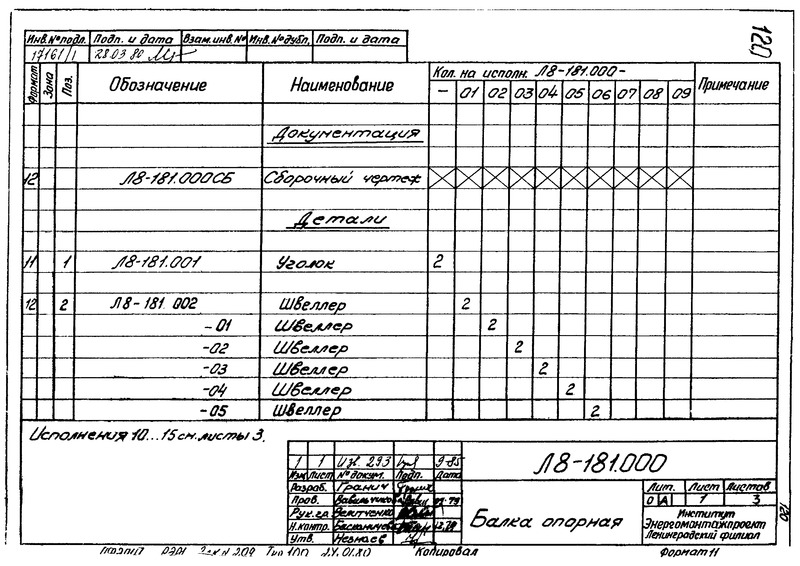 120
Инв.№подл. Подп. и дата Взам.инв.№ Инв.№дубл. Подп. и дата
17161/1 28.03.80
Формат Зона Поз. Обозначение Наименование Кол. на исполн. Л8-181.000- Примечание
- 01 02 03 04 05 06 07 08 09
Документация
12 Л8-181.000СБ Сборочный чертеж
Детали
11 1 Л8-181.001 Уголок 2
12 2 Л8-181.002 Швеллер 2
-01 Швеллер 2
-02 Швеллер 2
-03 Швеллер 2
-04 Швеллер 2
-05 Швеллер 2
Исполнения 10...15 см. листы 3.
1 1 Изв. 293 9-85
Изм Лист № докум. Подп. Дата
Л8-181.000
Разраб. Гранич
Пров.
Рук.гл.
Н.контр.
Утв. Незнаев
Балка опорная
Лит. Лист Листов
О А 1 3
Институт
Энергомонтажпроект
Ленинградский филиал
120
Копировал Формат 11